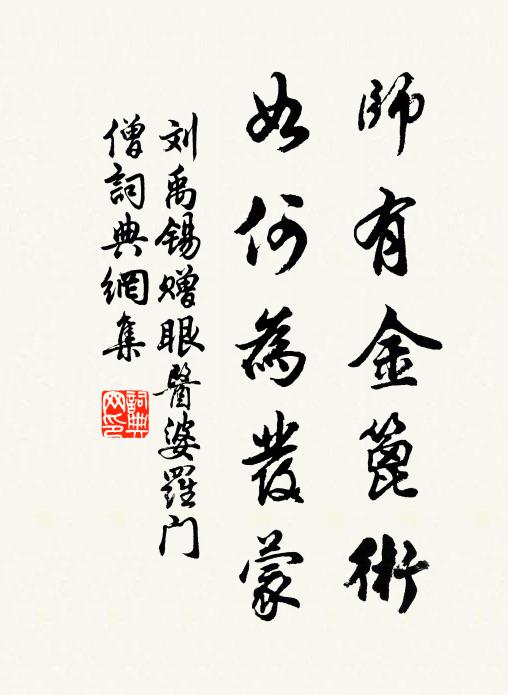 師有金篦術
如何為發蒙
刘禹锡赠眼醫婆羅门
僧詞典網集
詞典网印